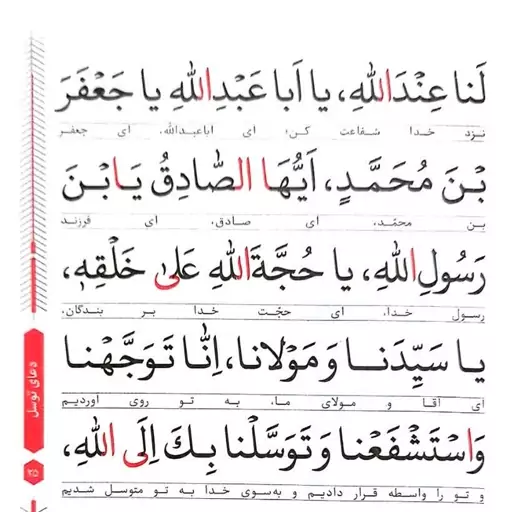 لَنا عِنْدَاللهِ، یا اَبا عَبْدِاللهِ یا جَعْفَرَ
نزد خدا شفاعت کن، ای اباعبدالله، ای جعفر
بْنَ مُحَمَّدٍ، اَیُّهَا الصّادِقُ یَابْنَ
بن محمّد، ای صادق، ای فرزند
رَسُولِ اللهِ، یا حُجَّةَ اللهِ عَلیٰ خَلْقِهٖ،
رسول خدا، ای حجّت خدا بر بندگان،
یا سَیِّدَنا وَ مَوْلانا، اِنّا تَوَجَّهْنا
ای آقا و مولای ما، به تو روی آوردیم
وَاسْتَشْفَعْنا وَ تَوَسَّلْنا بِكَ اِلَی اللهِ،
و تو را واسطه قرار دادیم و به‌سوی خدا به تو متوسل شدیم
دعای توسل
۳۵